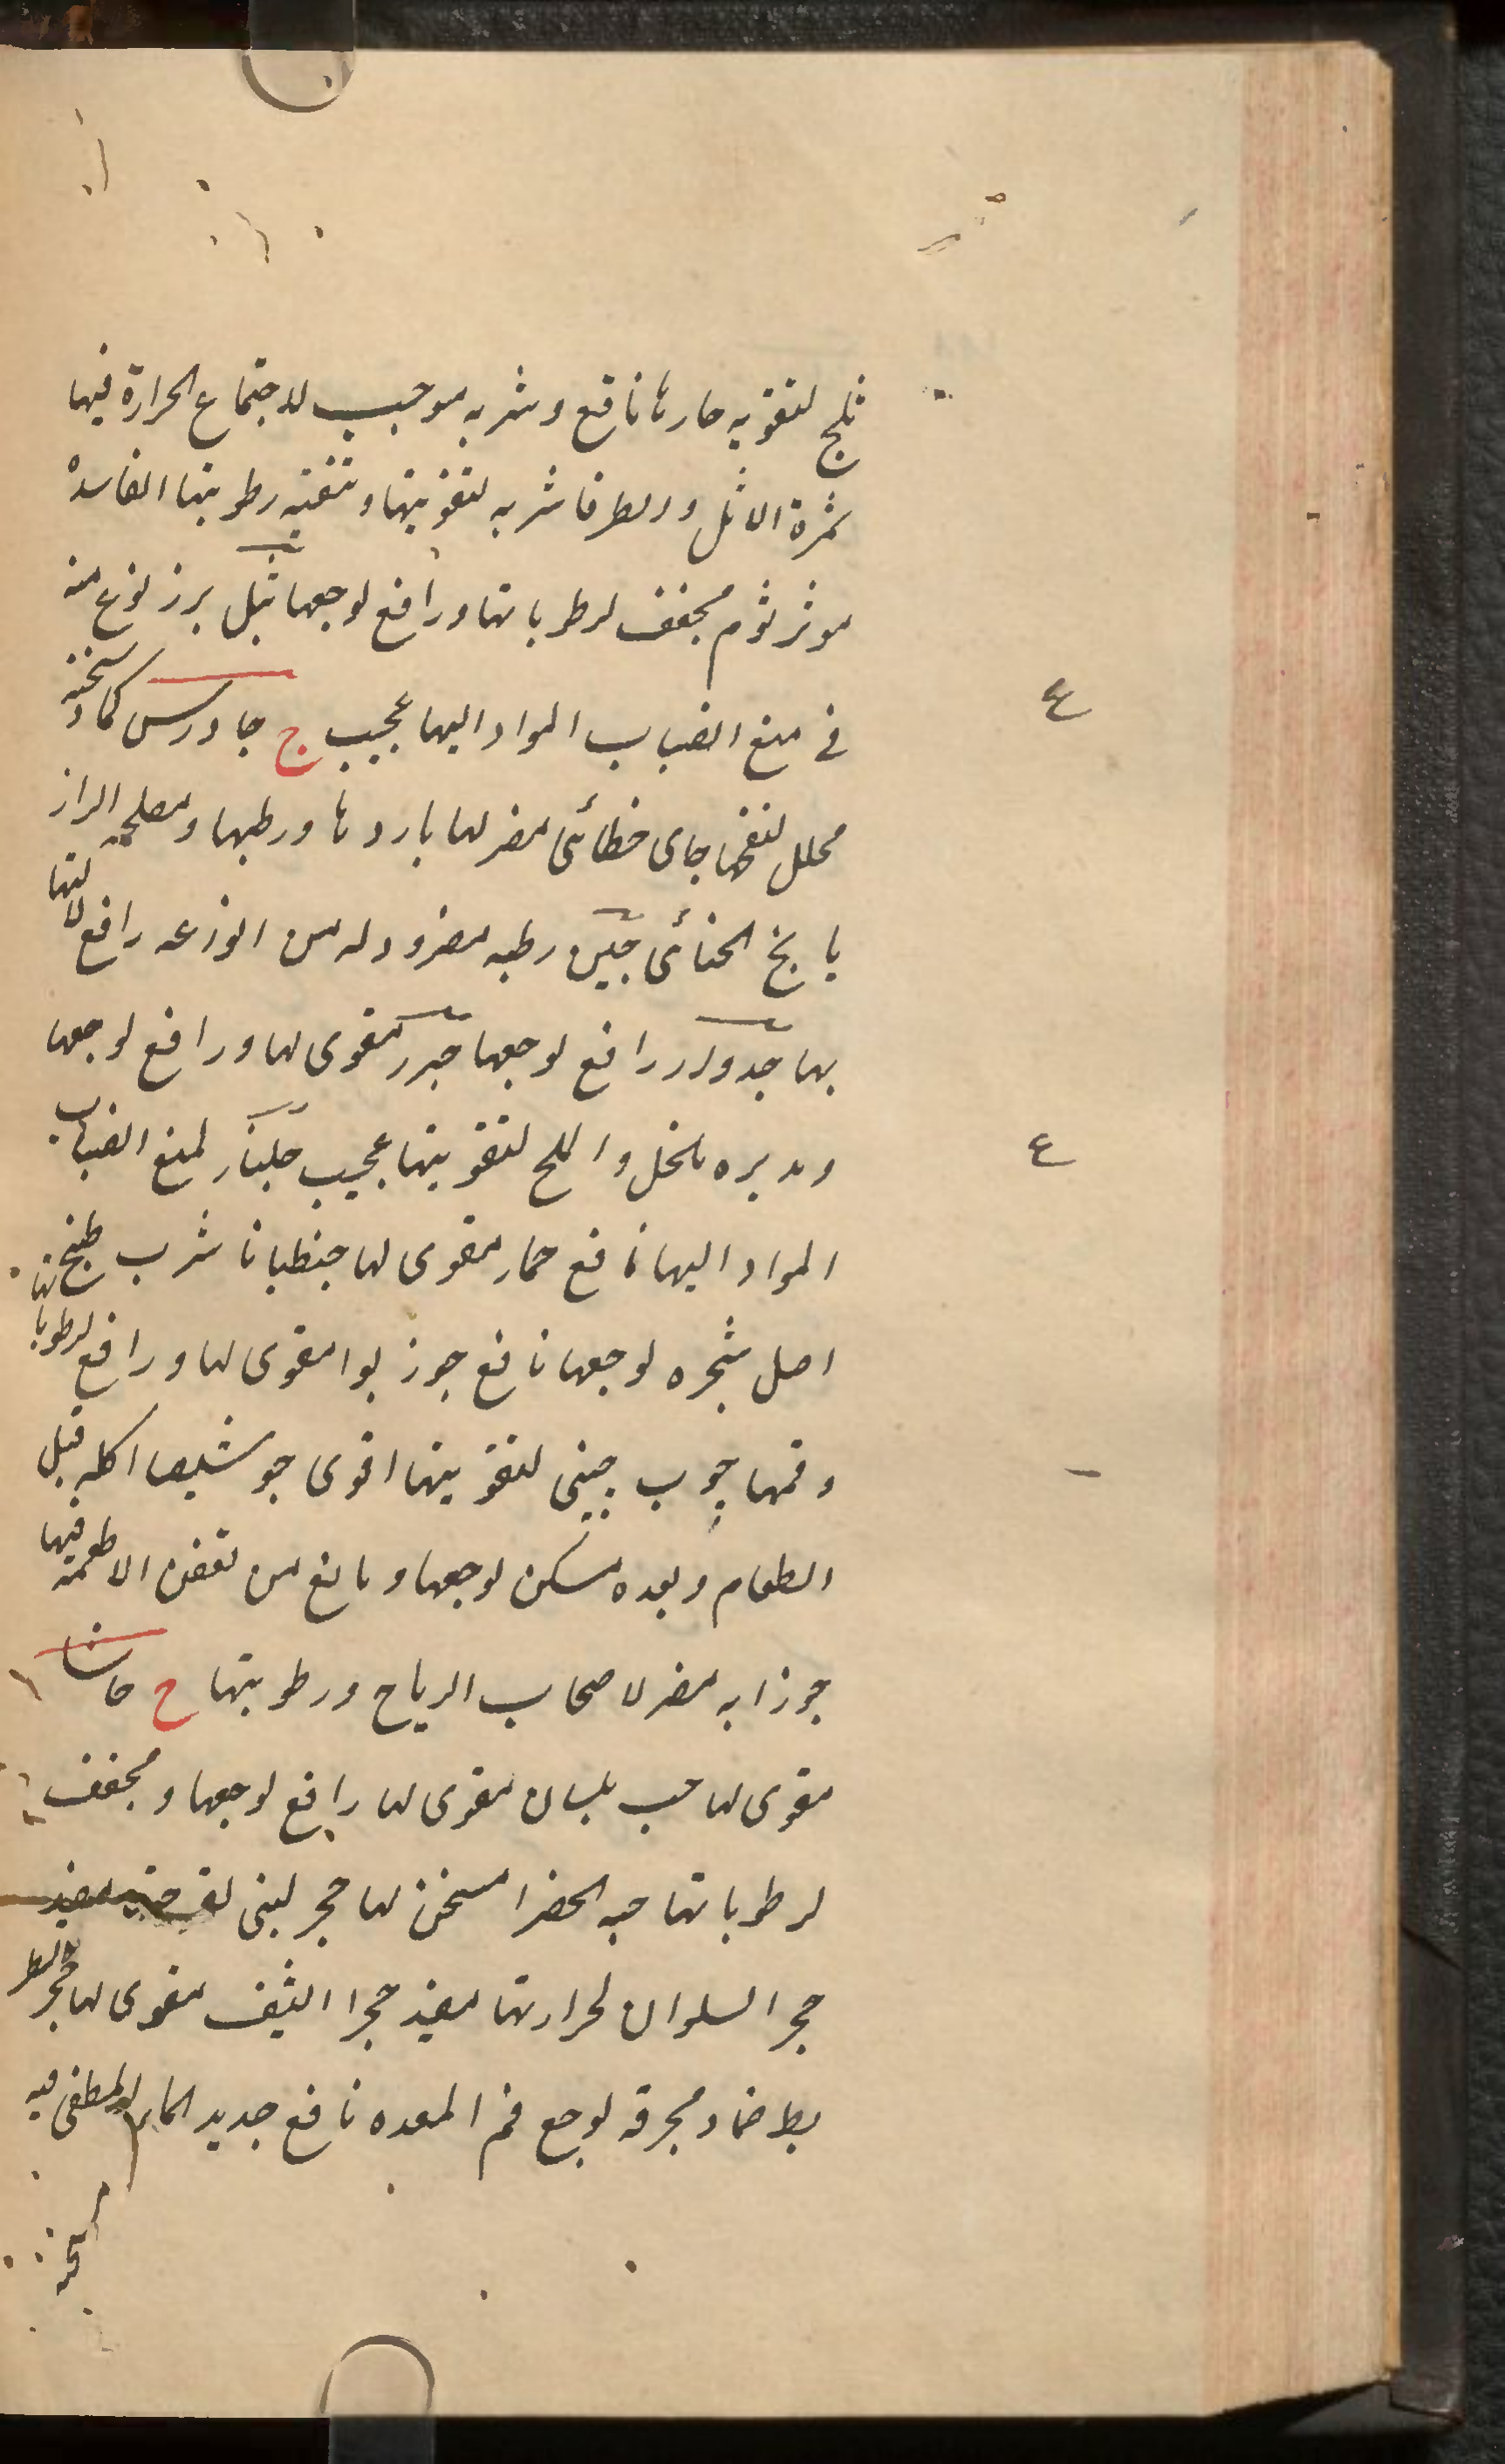 ثلج لتقویه حارها نافع وشربه موجب لاجتماع الحرارة فیها
ثمرة الاثل والطرفا شربه لتقویتها وتنقیه رطوبتها الفاسدة
موثر ثوم مجفف لرطوباتها ورافع لوجعها ثیل برز نوع منه
فی منع انصباب المواد الیها عجیب ج جاورس کماد سخنة
محلل لنفخها جای خطائی مضر لها باردها ورطبها ومصلحه الراز
یانج الخنائی جبن رطبه مضر ودله من الوزعه رافع
بها جدوار رافع لوجعها جزر مقوی لها ورافع لوجعها
ومدبره بالخل والملح لتقویتها عجیب جلنار لمنع انصباب
المواد الیها نافع جمار مقوی لها جنطیانا شرب طبخ
اصل شجره لوجعها نافع جوز بوا مقوی لها ورافع لرطوباتها
وفمها چوب چینی لتقویتها اقوی جوشیصا اکله قبل
الطعام وبعده مسکن لوجعها ومانع من تعفن الاطعمه فیها
جوزابه مضر لاصحاب الریاح ورطوبتها ح حاشا
مقوی لها حب بلسان مقوی لها رافع لوجعها ومجفف
لرطوباتها حبه الخضرا مسخن لها حجر لبنی مفید
حجر السلوان لحرارتها مفید حجر الیشف مقوی لها حجر
یط ضماد محرقه لوجع فم المعده نافع حدید الماء المطفی فیه
ع
ع